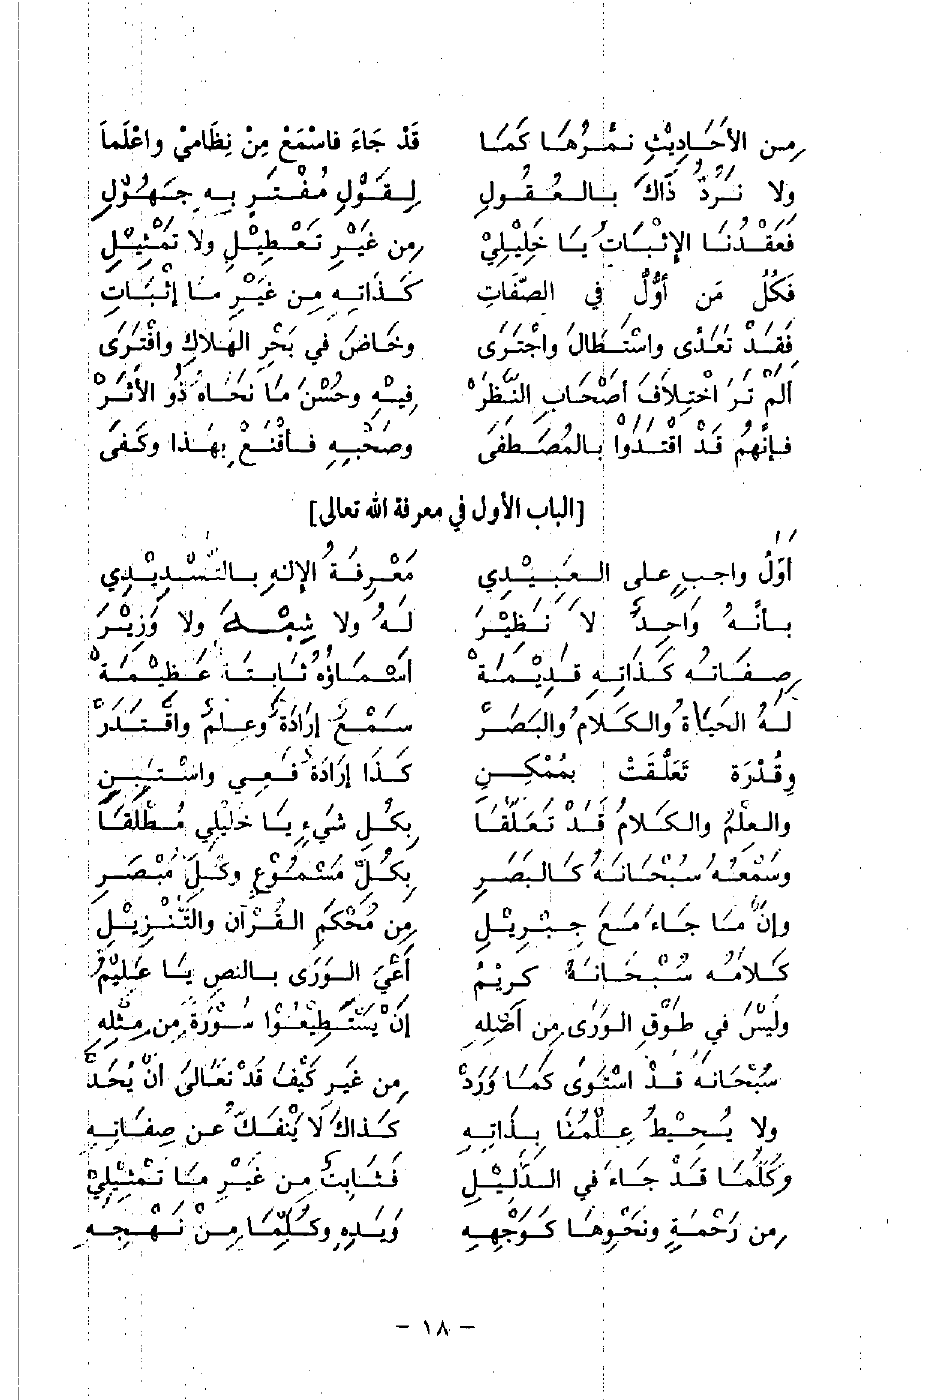 مِن الأَحَادِيْثِ نُمُرُّهَا كَمَا قَدْ جَاءَ فَاسْمَعْ مِنْ نِظَامِيْ واعْلَمَا
ولا نَرُدُّ ذَاكَ بالعُقُولِ لِقَوْلِ مُفْتَرٍ بِهِ جَهُوْلِ
فَعَقْدُنَا الإِثْبَاتُ يَا خَلِيْلِيْ مِن غَيْرِ تَعْطِيْلٍ ولا تَمْثِيْلِ
فَكُلُّ مَن أَوَّلَ في الصِّفَاتِ كَذَاتِهِ مِن غَيْرِ مَا إثْبَاتِ
فَقَدْ تَعَدَّى واسْتَطَالَ واجْتَرَى وخَاضَ في بَحْرِ الهَلَاكِ وافْتَرَى
أَلَمْ تَرَ اخْتِلَافَ أَصْحَابِ النَّظَرْ فِيْهِ وحُسْنَ مَا نَحَاهُ ذُو الأَثَرْ
فَإِنَّهُم قَدْ اقْتَدَوْا بالمُصْطَفَى وصَحْبِهِ فَاقْنَعْ بِهَذا وكَفَى
[الباب الأول في معرفة الله تعالى]
أَوَّلُ واجِبٍ على العَبِيْدِي مَعْرِفَةُ الإِلهِ بالتَّسْدِيْدِي
بِأَنَّهُ وَاحِدٌ لَا نَظِيْرَ لَهُ ولا شِبْهٌ ولا وَزِيْرَ
صِفَاتُه كَذَاتِهِ قَدِيْمَهْ أَسْمَاؤُه ثَابِتَةٌ عَظِيْمَهْ
لَهُ الحَيَاةُ والكَلَامُ والبَصَرْ سَمْعٌ إرَادَةٌ وعِلْمٌ واقْتَدَرْ
وقُدْرَة تَعَلَّقَتْ بِمُمْكِنِ كَذَا إِرَادَة فَعِي واسْتَبِينِ
والعِلْمُ والكَلَامُ قَدْ تَعَلَّقَا بِكُلِ شَيْءٍ يَا خَلِيْلِي مُطْلَقَا
وسَمْعُه سُبْحَانَهُ كَالبَصَرِ بِكُلِّ مَسْمُوْعٍ وَكُلِّ مُبْصَرِ
وإنَّ مَا جَاءَ مَعَ جِبْرِيْلِ مِن مُحْكَمِ القُرْآنِ والتَّنْزِيْلِ
كَلَامُه سُبْحَانَهُ كَرِيْمُ أَعْيَ الوَرَى بالنصِ يَا عَلِيْمُ
ولَيْسَ في طَوْقِ الوَرَى مِن أَصْلِهِ إنْ يَسْتَطِيْعُوْا سُوْرَةً مِن مِثْلِهِ
سُبْحَانَهُ قَدْ اسْتَوَى كَمَا وَرَدْ مِن غَيرِ كَيْفٍ قَدْ تَعَالَى أَنْ يُحَدّْ
ولا يُحِيْطُ عِلْمُنَا بِذَاتِهِ كَذَاكَ لَا يَنْفَكُّ عن صِفَاتِهِ
وكُلَّمَا قَدْ جَاءَ في الدَّلِيْلِ فَثَابِتٌ مِن غَيْرِ مَا تَمْثِيْلِيْ
مِن رَحْمَةٍ ونَحْوِهَا كَوَجْهِهِ وَيَدِهِ وكُلِّمَا مِنْ نَهْجِهِ
- ١٨ -